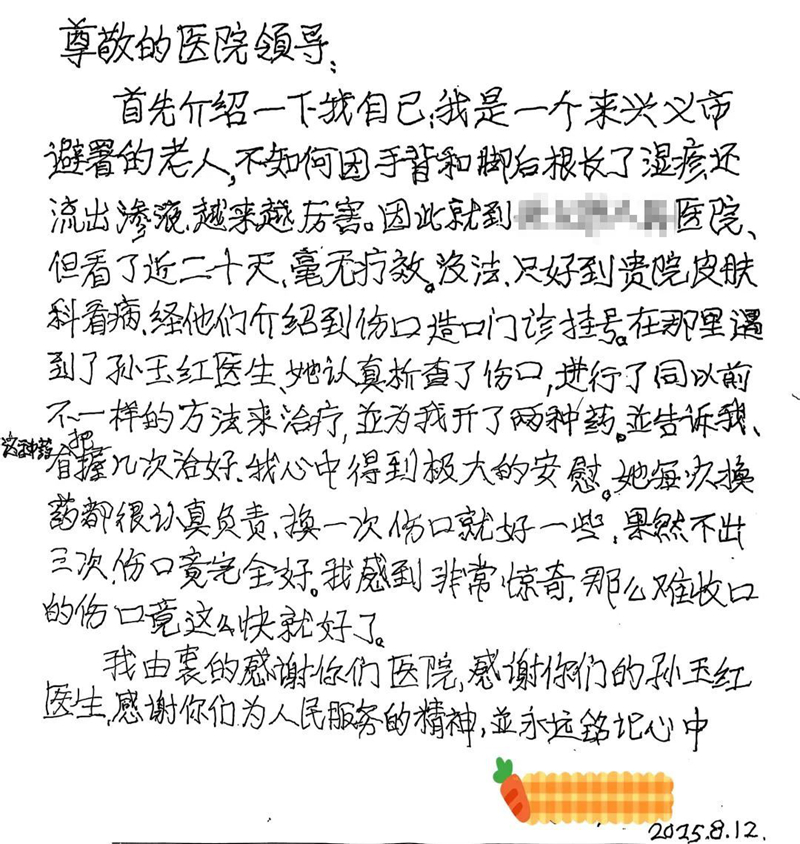 尊敬的医院领导：
首先介绍一下我自己：我是一个来兴义市
避署的老人，不知何因手背和脚后根长了湿疹还
流出渗液、越来越厉害。因此就到医院、
但看了近二十天、毫无疗效。没法、只好到贵院皮肤
科看病、经他们介绍到伤口造口门诊挂号。在那里遇
到了孙玉红医生、她认真析查了伤口，进行了同以前
不一样的方法来治疗，並为我开了两种药。並告诉我、
这种药有把握几次治好、我心中得到极大的安慰。她每次换
药都很认真负责、换一次伤口就好一些，果然不出
三次伤口竟完全好。我感到非常惊奇，那么难收口
的伤口竟这么快就好了。
我由衷的感谢你们医院，感谢你们的孙玉红
医生，感谢你们为人民服务的精神，並永远铭记心中
2025.8.12.